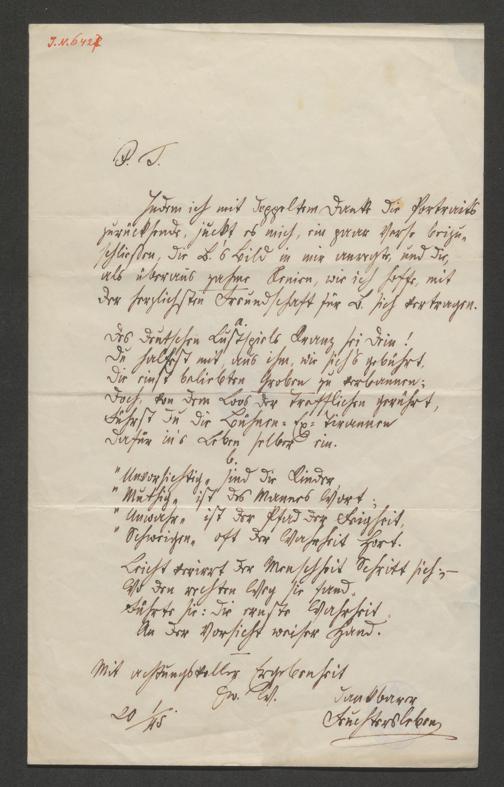 I.N. 6427
P. T.
Indem ich mit doppeltem Danke die Portraits
zurücksende, juckt es mich, ein paar Verse beizu-
schließen, die B.'s Bild in mir anregte, und die,
als überaus zahme Xenien, wie ich hoffe, mit
der herzlichsten Freundschaft für B. sich vertragen.
a.
Des deutschen Lustspiels Kranz sei dein!
Du halfst mit, aus ihm, wie sich's gebührt,
Die einst beliebten Groben zu verbannen;
Doch, von dem Loos der Trefflichen gerührt,
Führst du die Bühnen-Ex-Tirannen
Dafür in's Leben selber ein.
b.
"Unvorsichtig" sind die Kinder,
"Muthig" ist des Mannes Wort;
"Unwahr" ist der Pfad der Feigheit,
"Schweigen" oft der Wahrheit Hort.
Leicht verirrt der Menschheit Schritt sich;–
Wo den rechten Weg sie fand,
Führte sie: die ernste Wahrheit
An der Vorsicht weiser Hand.
Mit achtungsvoller Ergebenheit
Ew. W.
dankbarer
20 1/45
Feuchtersleben